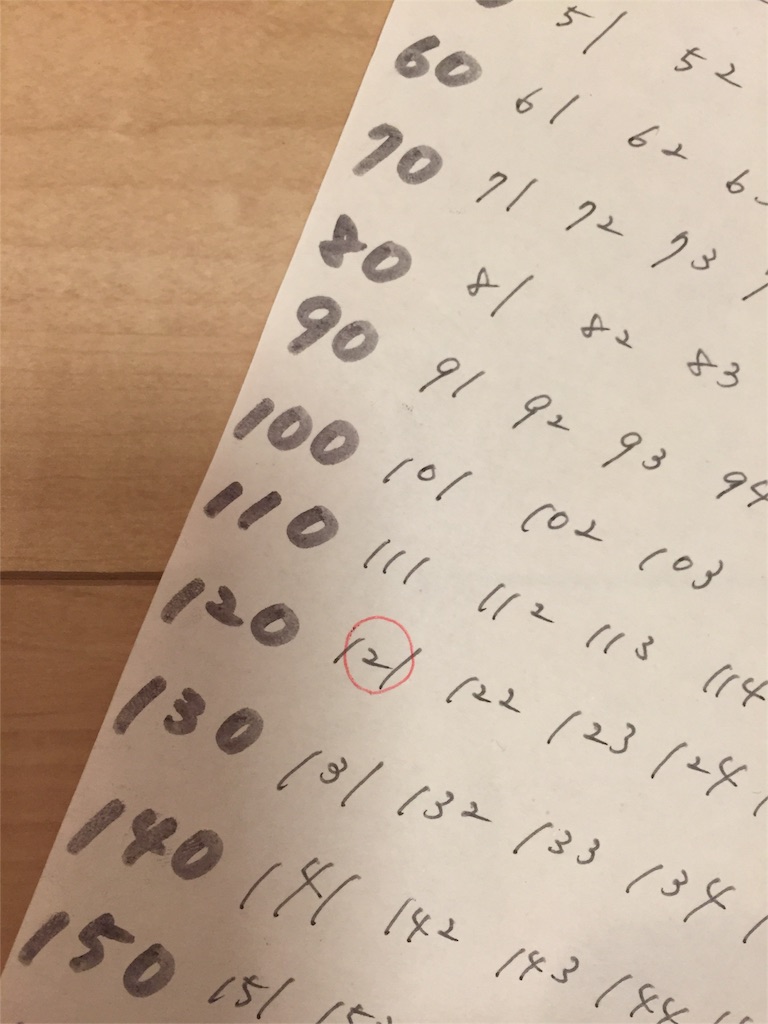 51 52
60 61 62
70 71 72 73
80 81 82 83
90 91 92 93 94
100 101 102 103
110 111 112 113 114
120 121 122 123 124
130 131 132 133 134
140 141 142 143 144
150 151